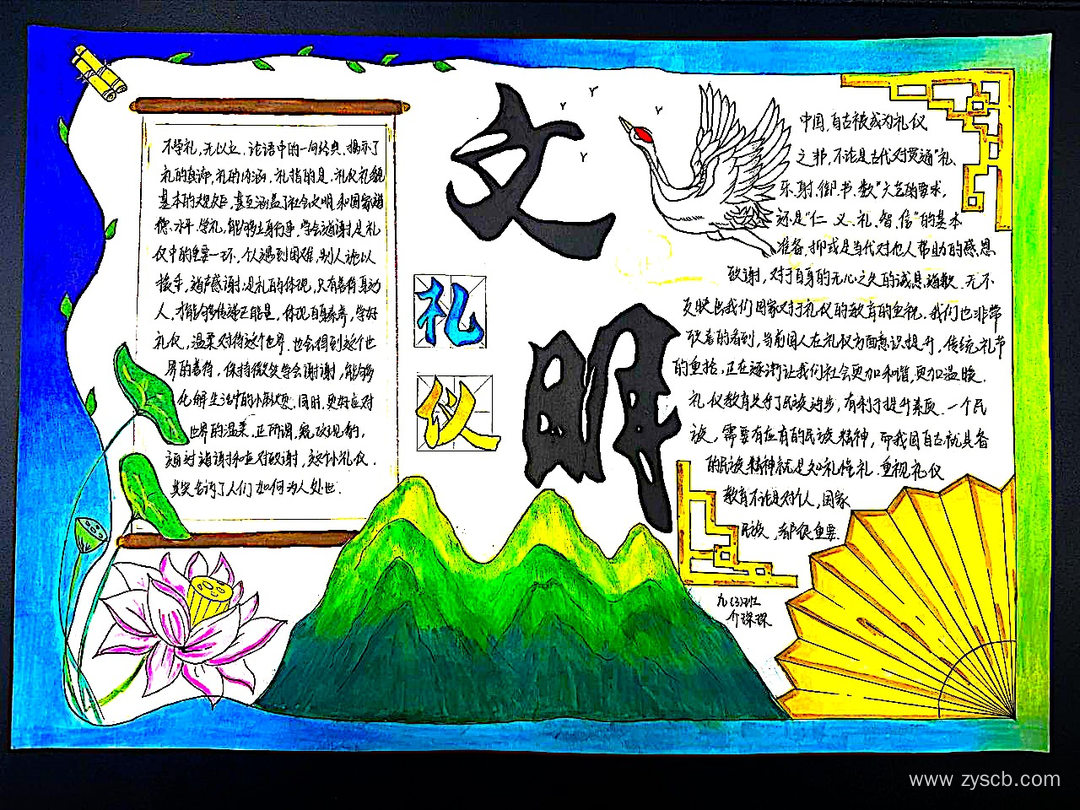 文明
礼
仪
不学礼,无以立.论语中的一句经典.揭示了
礼的真谛,礼的内涵.礼指的是.礼仪礼貌
基本的规矩.甚至涵盖了社会文明和国家道
德水平.学礼,能够立身行事,学会道谢是礼
仪中的重要一环.以遇到困难,别人施以
援手,道声感谢.是礼的体现,只有善待真为
人.才能够传递正能量,体现自身素养,学好
礼仪,温柔对待这个世界.也会得到这个世
界的善待.保持微笑学会谢谢,能够
化解生活中的小麻烦.同时.更好应对
世界的温柔.正所谓.
通过道谢和应对致谢,这个小礼仪.
其实告诉了人们如何为人处世.
中国.自古被成为礼仪
之邦,不论是古代对贯通“礼、
乐、射、御、书、数”六艺的要求,
还是“仁、义、礼、智、信”的基本
准备,抑或是当代对他人帮助的感恩
致谢,对于自身的无心之失的诚恳道歉.无不
反映出我们国家对于礼仪的教育的重视.我们也非常
欣喜的看到,当前国人在礼仪方面意识提升,传统礼节
的重拾,正在逐渐让我们社会更加和谐,更加温暖.
礼仪教育关乎了民族进步,有利于提升素质.一个民
族,需要有应有的民族精神,而我国自古就具备
的民族精神就是知礼懂礼.重视礼仪
教育不论是对个人,国家
民族,都很重要.
九(3)班
介琛琛
www.zyscb.com